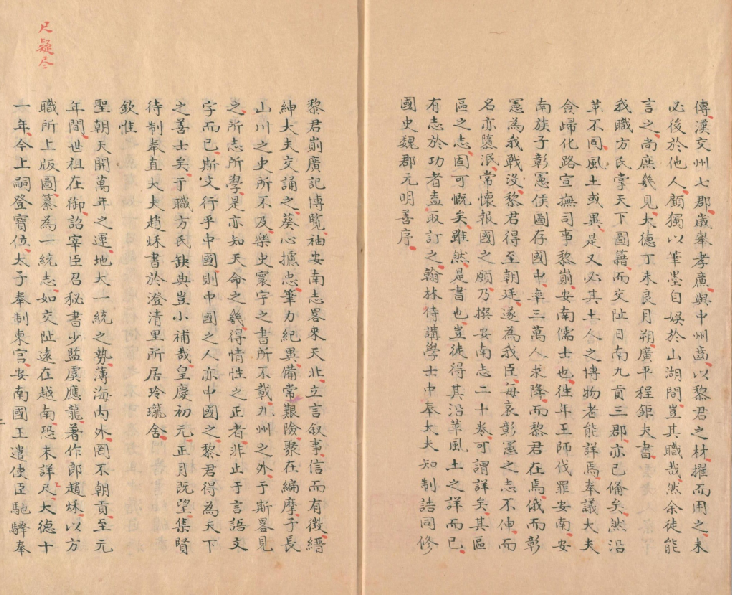 傳漢交州七郡歲舉孝廣與中州齒以黎君之材擢而用之未
必後於他人顧獨以筆墨自娛於山湖間豈其職哉然余徒能
言之南庶幾見大德丁未良月朔廣平程鉅夫書
我職方氏掌天下圖籍而交阯日南九貢三郡亦已備矣然沿
革不同風土或異是又必其土人之博物者能詳焉奉議大夫
僉歸化路宣撫司事黎崱安南儒士也往年王師伐罪安南安
南族子彰憲侯國存國中率三萬人求降而黎君在焉俄而彰
憲為我戰沒黎君得至朝廷遂為我臣每哀彰憲之志不伸而
名亦墓泯常懷報國之願乃撰安南志二十卷可謂詳矣其區
區之志固可慨矣雖然是書也豈徒得其沿革風土之詳而已
有志於功者盍取訂之翰林待講學士中奉大夫知制誥同修
國史魏郡元明善序
黎君崱廣記博覧袖安南志畧來天北立言叙事信而有徵縉
紳大夫交誦之葵心攄忠筆力紀異備常艱險聚在編摩子長
山川之史所不及樂史寰宇之書所不載九州之外于斯畧見
之所志所學是亦知天命之幾得情性之正者非止于言語文
字而已斯文行乎中國則中國之人亦中國之黎君得為天下
之善士矣于職方氏缺典豈小補哉皇慶初元正月既望集賢
待制奉直大夫趙秌書於澄清里所居玲瓏舍
欽惟
聖朝天開萬年之運地大一統之勢薄海內外罔不朝貢至元
年間世祖在御詔宰臣召秘書少監虞應龍著作郎趙秌以方
職所上版圖纂為一統志如交阯遠在越南恐未詳尺大德十
一年今上嗣登寶位太子奉制東宮安南國王遣使臣馳驛奉
尺疑尽